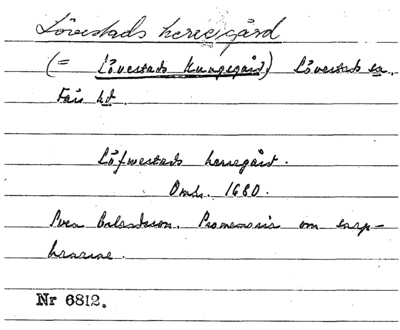 Lövestads herregård
(= Lövestads Kungsgård) Lövestads sn.
Färs hd.
Löfwestads herregård.
Omkr. 1680.
Sven Erlandsson. Promemoria om
Nr 6812.